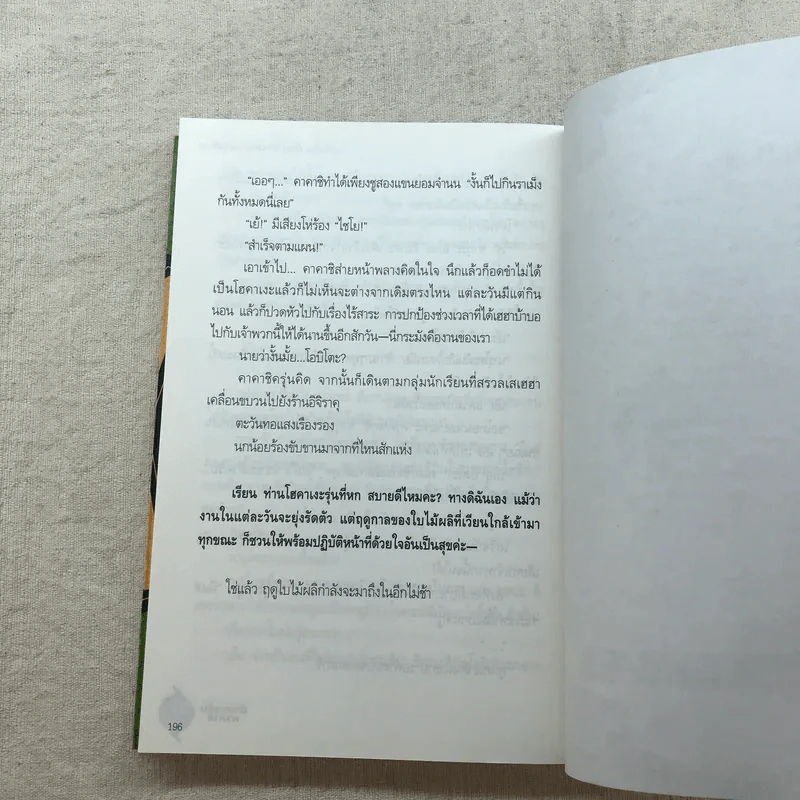 “เออๆ...” คาคาชิทำได้เพียงชูสองแขนยอมจำนน “งั้นก็ไปกินราเม็ง
กันทั้งหมดนี่เลย”
“เย้!” มีเสียงโห่ร้อง “ไชโย!”
“สำเร็จตามแผน!”
เอาเข้าไป... คาคาชิส่ายหน้าพลางคิดในใจ นึกแล้วก็อดขำไม่ได้
เป็นโฮคาเงะแล้วก็ไม่เห็นจะต่างจากเดิมตรงไหน แต่ละวันมีแต่กิน
นอน แล้วก็ปวดหัวไปกับเรื่องไร้สาระ การปกป้องช่วงเวลาที่ได้เฮฮาบ้าบอ
ไปกับเจ้าพวกนี้ให้ได้นานขึ้นอีกสักวัน—นี่กระมังคืองานของเรา
นายว่างั้นมั้ย...โอบิโตะ?
คาคาชิครุ่นคิด จากนั้นก็เดินตามกลุ่มนักเรียนที่สรวลเสเฮฮา
เคลื่อนขบวนไปยังร้านอิจิราคุ
ตะวันทอแสงเรืองรอง
นกน้อยร้องขับขานมาจากที่ไหนสักแห่ง
เรียน ท่านโฮคาเงะรุ่นที่หก สบายดีไหมคะ? ทางดิฉันเอง แม้ว่า
งานในแต่ละวันจะยุ่งรัดตัว แต่ฤดูกาลของใบไม้ผลิที่เวียนใกล้เข้ามา
ทุกขณะ ก็ชวนให้พร้อมปฏิบัติหน้าที่ด้วยใจอันเป็นสุขค่ะ—
ใช่แล้ว ฤดูใบไม้ผลิกำลังจะมาถึงในอีกไม่ช้า
196